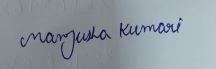 Manjusha Kumari